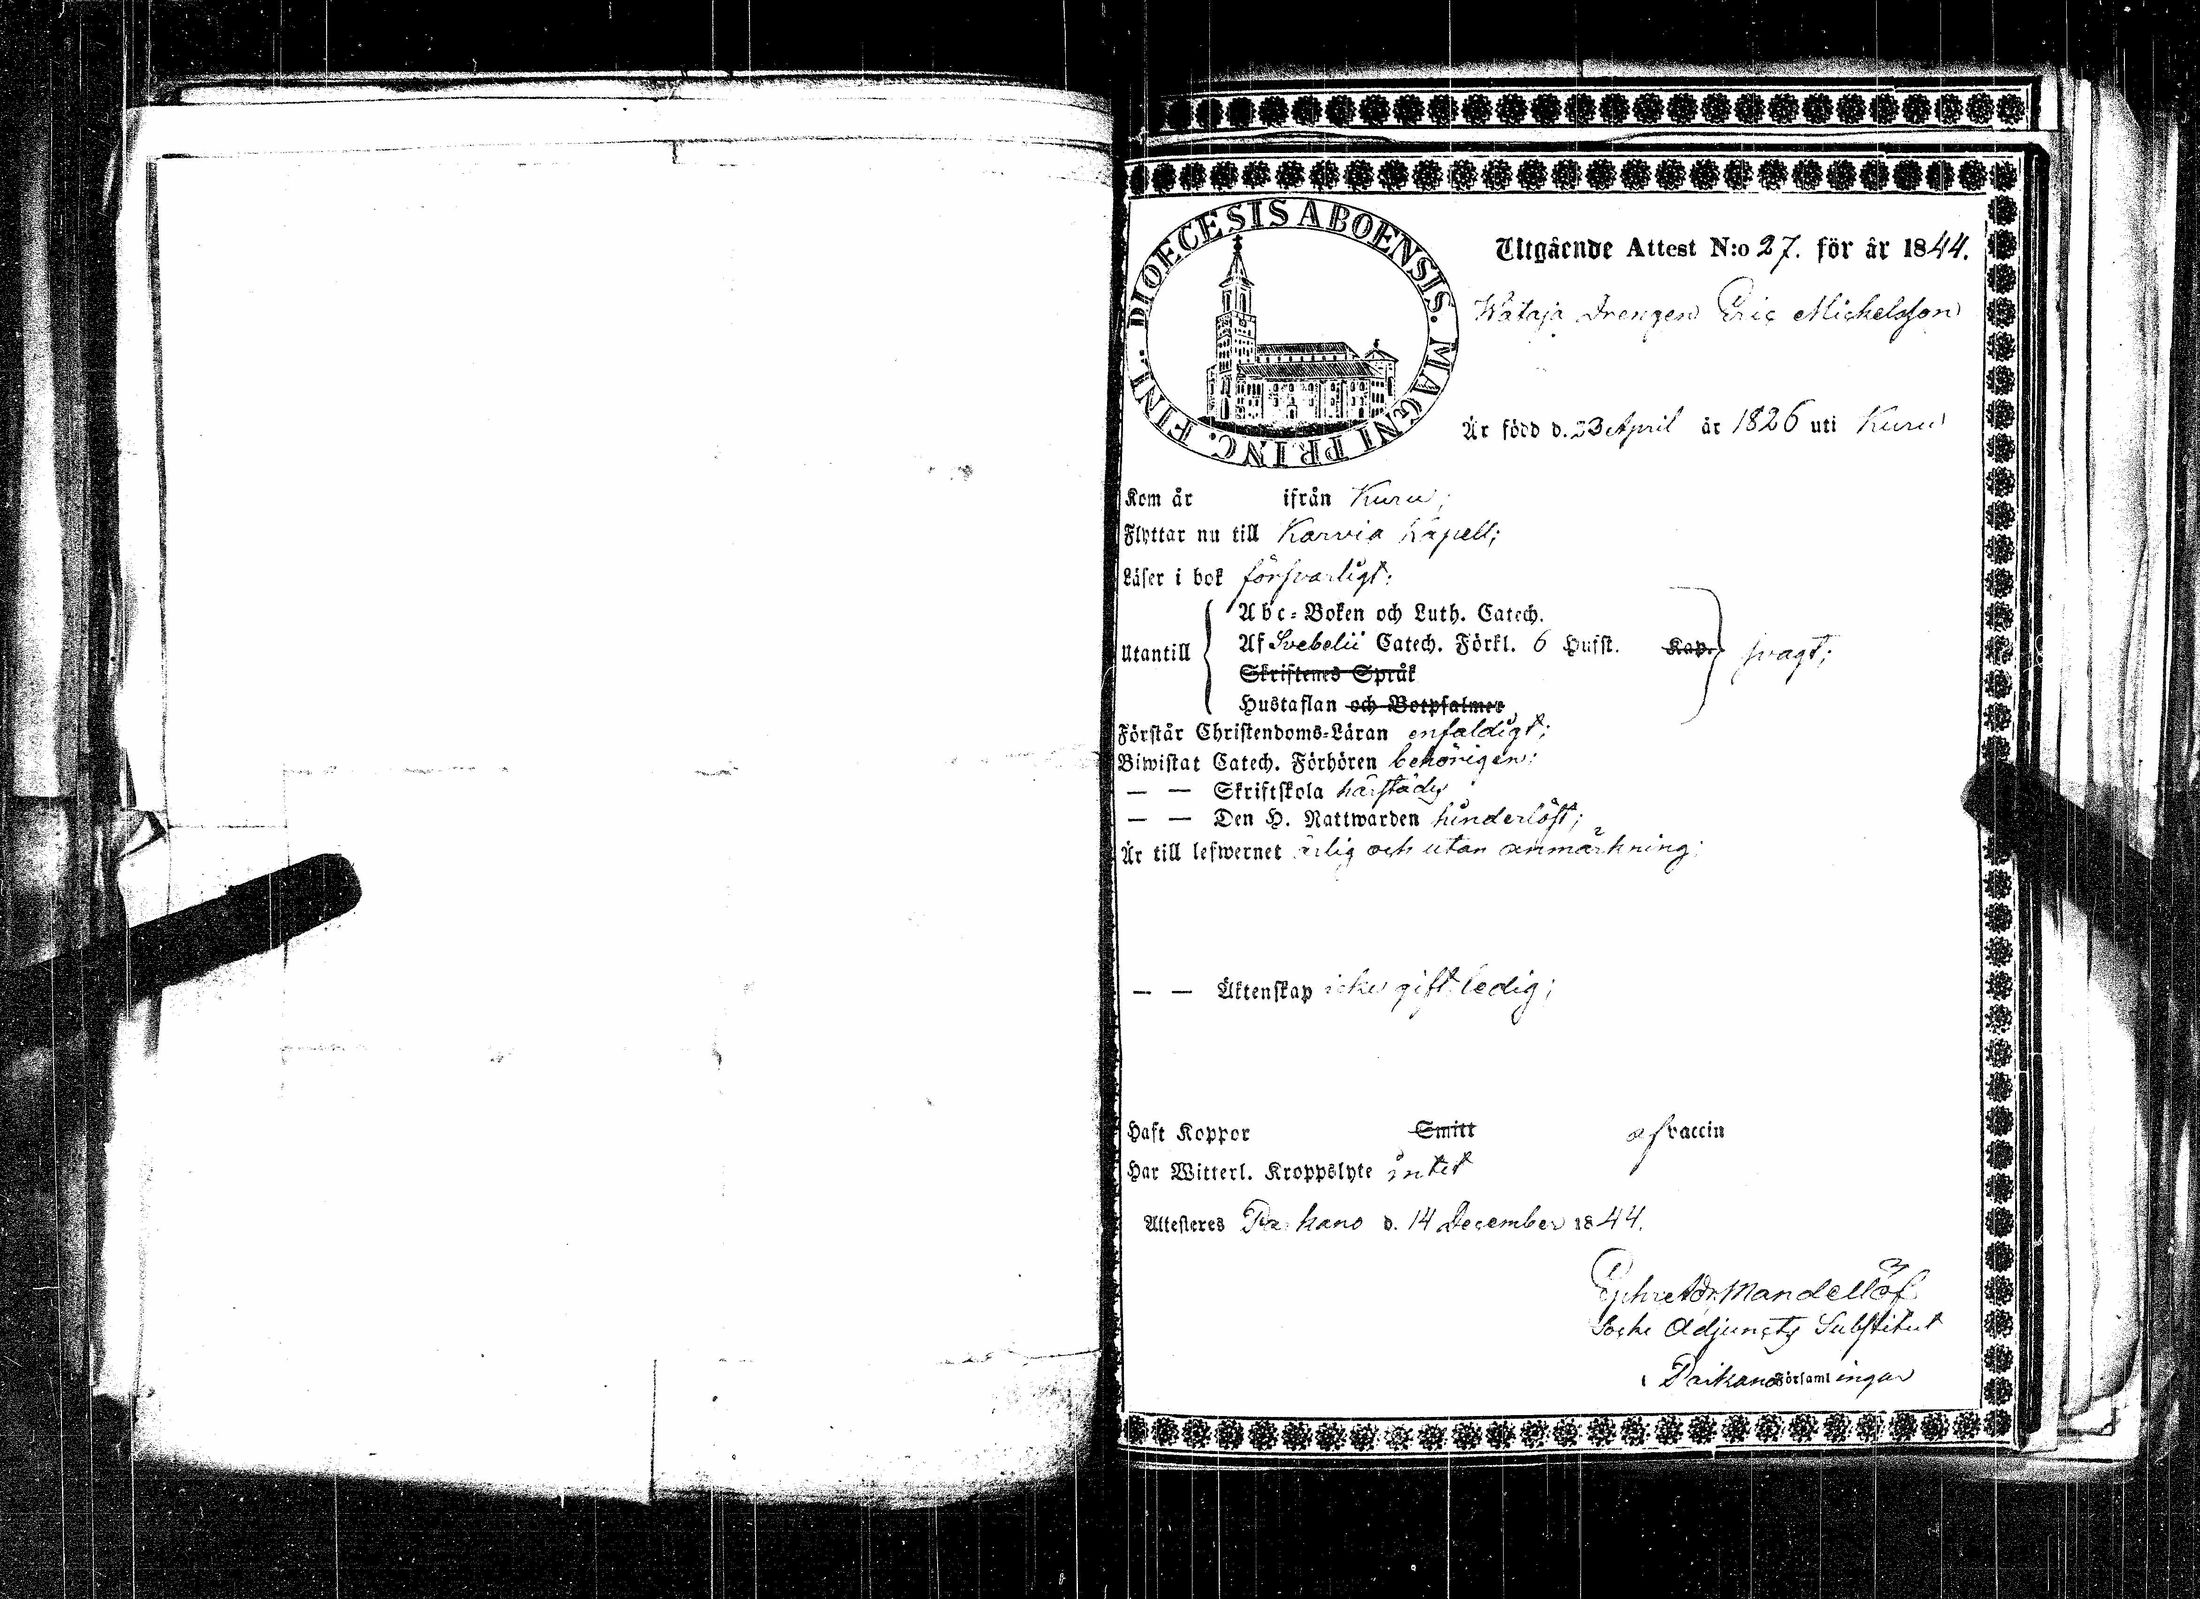 DIOECESIS ABOENSIS. MAGNI PRINC. FINL.
Utgående Attest N:o 27. för år 1844.
Wataja Drengen Eric Michelsson
Är född d. 23 April år 1826 uti Kuru
Kom år ifrån Kuru;
Flyttar nu till Karvia Kapell;
Läser i bok försvarligt;
Utantill
Abc-Boken och Luth. Catech.
Af Svebelii Catech. Förkl. 6 Hufst. Kap. svagt;
Skriftenes Språk
Hustaflan och Botpsalmer
Förstår Christendoms-Läran enfaldigt;
Biwistat Catech. Förhören behörigen;
— — Skriftskola härstädes
— — Den H. Nattwarden hinderlöst;
Är till lefwernet ärlig och utan anmärkning;
— — Äktenskap icke gift ledig;
Haft Koppor Smitt af vaccin
Har Witterl. Kroppslyte intet
Attesteres Parkano d. 14 December 1844.
Mandellöf
Sockne Adjuncts Substitut
i Parkano Församlingar